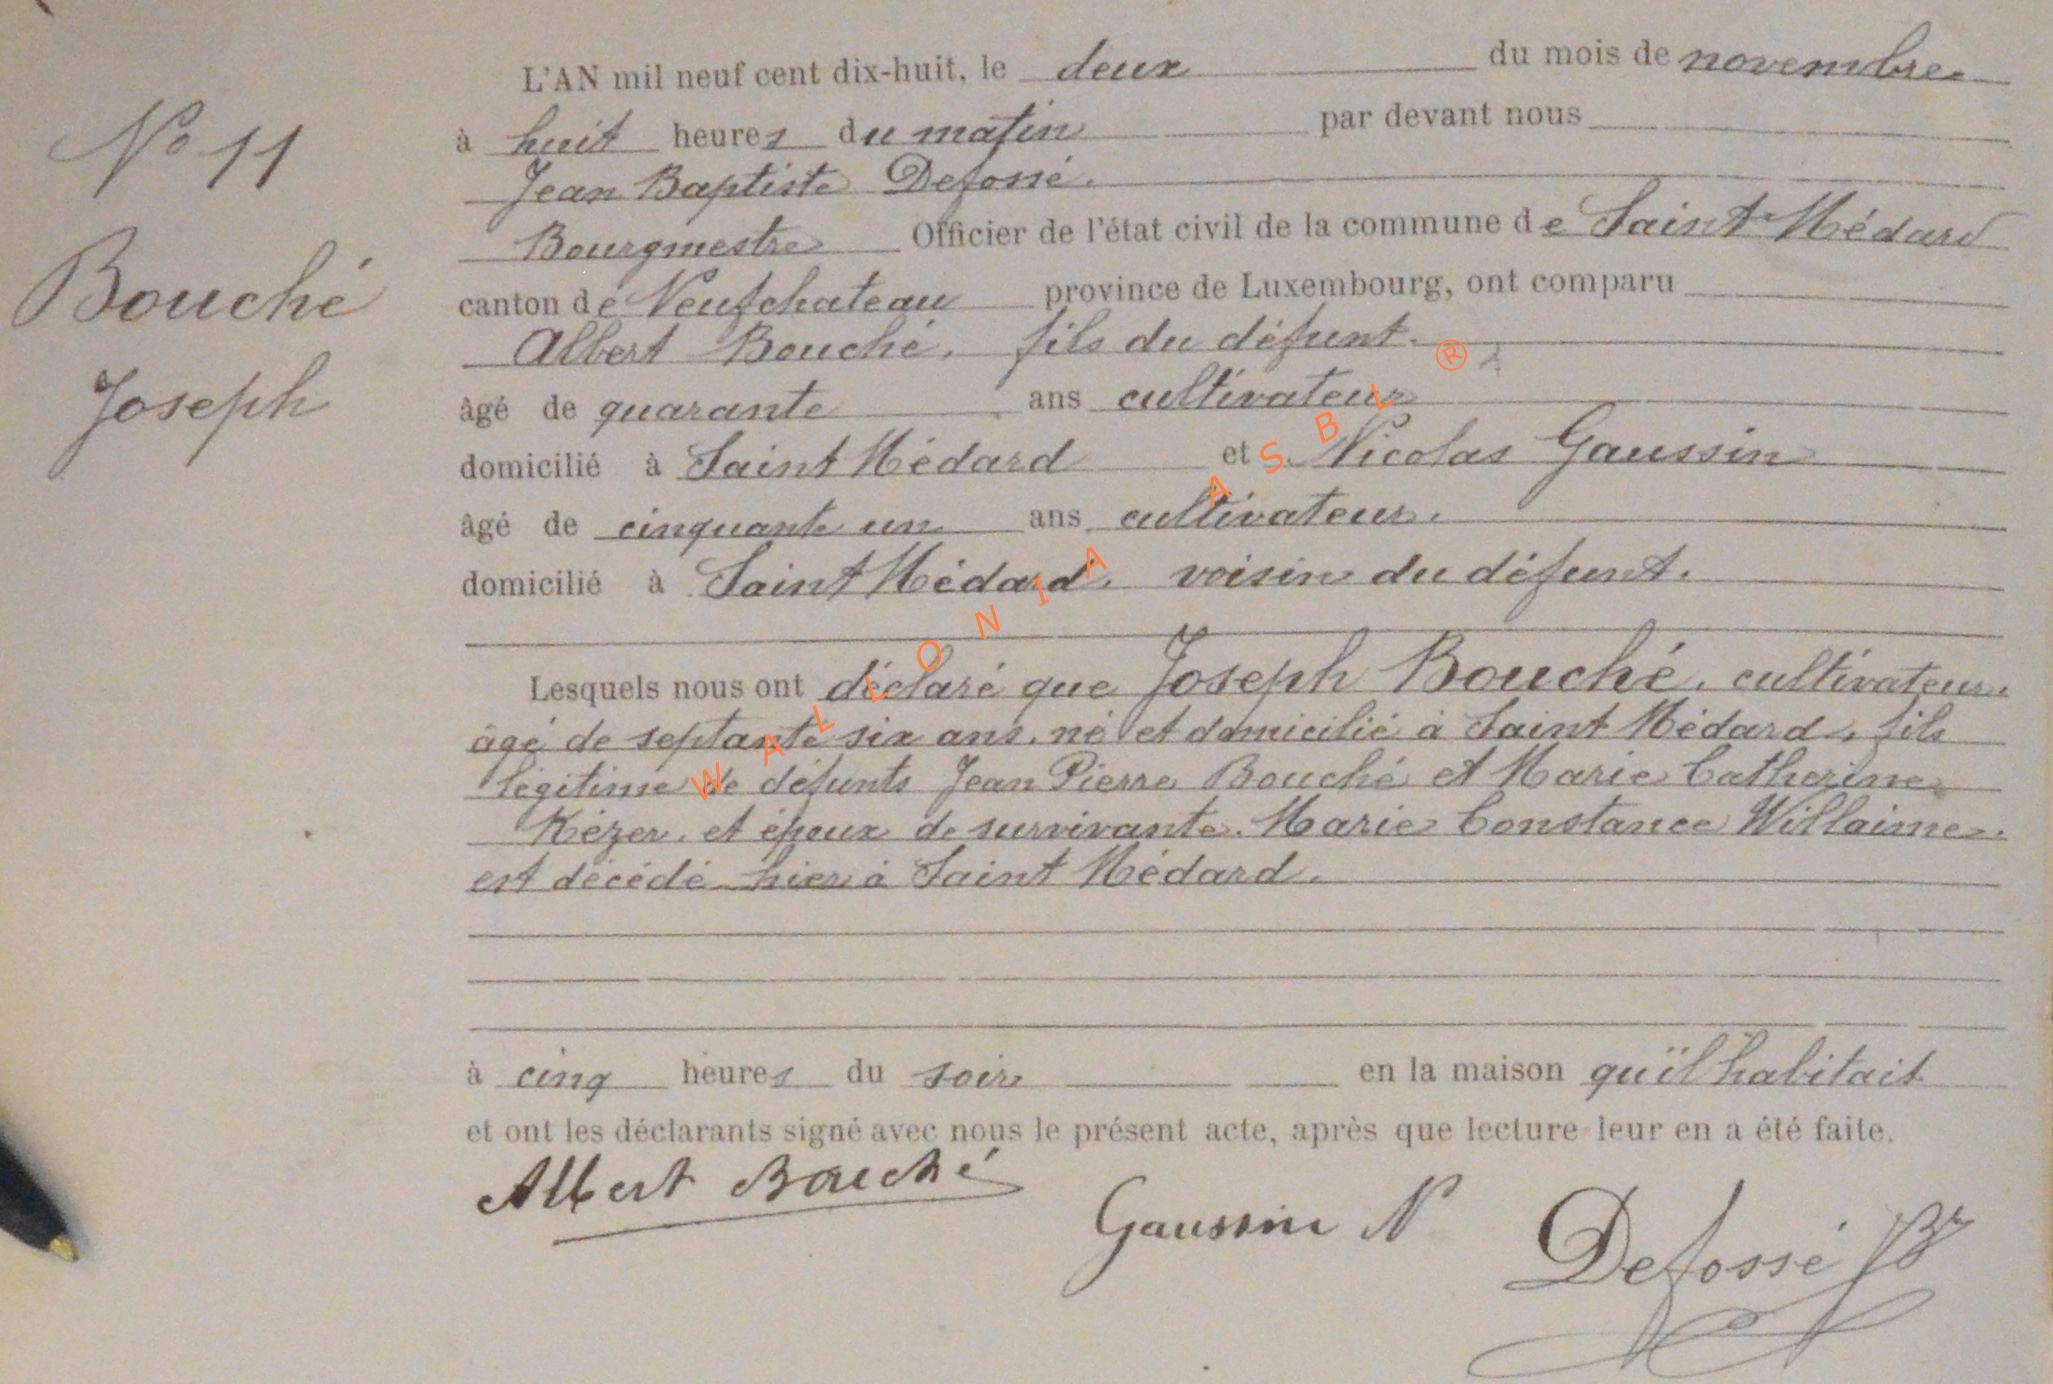 N° 11
Bouché
Joseph
L'AN mil neuf cent dix-huit, le deux du mois de novembre
à huit heures du matin par devant nous
Jean Baptiste Defossé.
Bourgmestre Officier de l'état civil de la commune de Saint-Médard
canton de Neufchateau province de Luxembourg, ont comparu
Albert Bouché, fils du défunt.
âgé de quarante ans cultivateur
domicilié à Saint Médard et Nicolas Gaussin
âgé de cinquante un ans cultivateur.
domicilié à Saint Médard, voisin du défunt.
Lesquels nous ont déclaré que Joseph Bouché, cultivateur,
âgé de septante six ans, né et domicilié à Saint Médard, fils
légitime de défunts Jean Pierre Bouché et Marie Catherine
Kézer, et époux de survivante Marie Constance Willaime,
est décédé hier à Saint Médard.
à cinq heures du soir en la maison qu'il habitait
et ont les déclarants signé avec nous le présent acte, après que lecture leur en a été faite.
Albert Bouché
Gaussin N
Defossé JB
WALLONIA ASBL ®